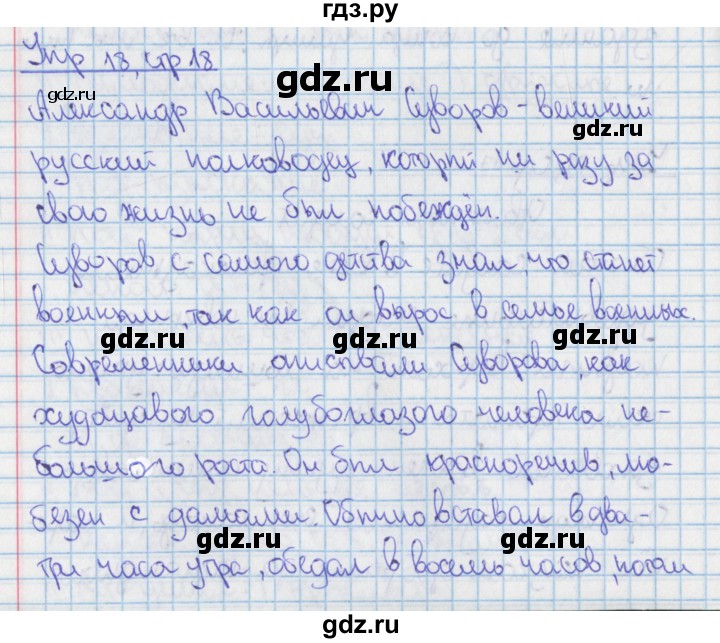 гдз.ру
Упр 18, стр 18
Александр Васильевич Суворов - великий
русский полководец, который ни разу за
свою жизнь не был побеждён.
Суворов с самого детства знал, что станет
военным, так как он вырос в семье военных.
Современники описывали Суворова, как
худощавого голубоглазого человека не-
большого роста. Он был красноречив, лю-
безен с дамами. Обычно вставал в два-
три часа утра, обедал в восемь часов, потом
gdz.ru
gdz.ru
gdz.ru
gdz.ru
gdz.ru
gdz.ru
gdz.ru
gdz.ru
gdz.ru
gdz.ru
gdz.ru